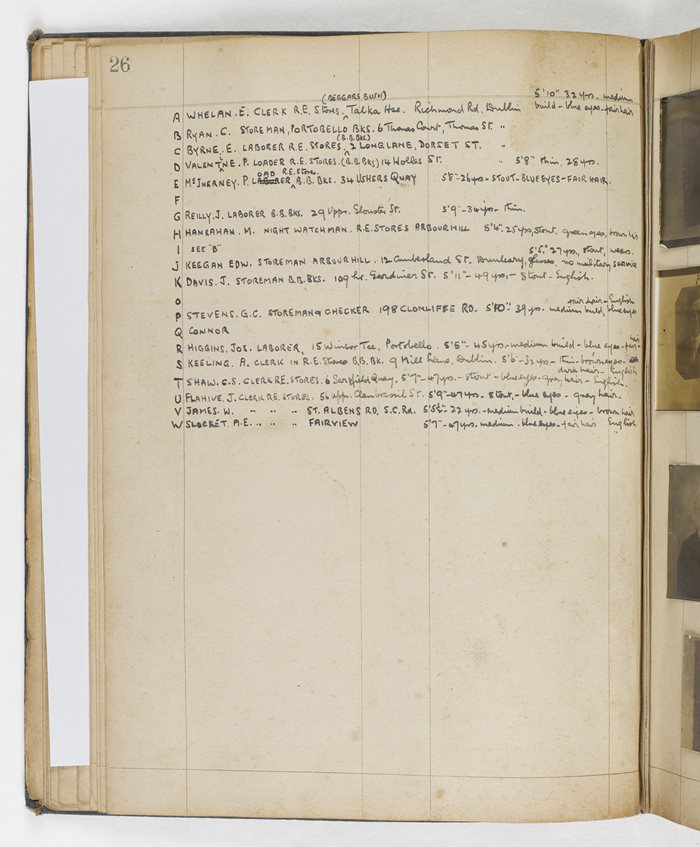 26
(BEGGARS BUSH) 5'10" 32 yrs. medium
A WHELAN. E. CLERK R.E. Stores, Talka Hse. Richmond Rd. Dublin build - blue eyes - fair hair
B RYAN. C. STOREMAN, PORTOBELLO BKS. 6 Thomas Court, Thomas St. "
(B.B.BKS)
C BYRNE. E. LABORER R.E. STORES, 2 LONG LANE, DORSET ST. "
D VALENTINE. P. LOADER R.E. STORES. (B.B.BKS) 14 Holles St. " 5'8" thin. 28 yrs.
R.E. Stores.
E McINERNEY. P. LABORER B.B. BKS. 34 USHERS QUAY 5'8"-26yrs - STOUT - BLUE EYES - FAIR HAIR.
F
G REILLY. J. LABORER B.B. Bks. 29 Uppr. Gloucester St. 5'9" - 34yrs - thin.
H HANRAHAN. M. NIGHT WATCHMAN. R.E. STORES ARBOUR HILL 5'4" - 25 yrs, stout, green eyes, brown hair
I SEE "B" 5'5", 27 yrs, stout, wears
J KEEGAN EDW. STOREMAN ARBOUR HILL. 12 Cumberland St. Dunleary, glasses. no military service
K DAVIS. J. STOREMAN B.B. BKS. 109 Lr. Gardiner St. 5'11" - 49 yrs. - Stout - English.
O fair hair - English
P STEVENS. G.C. STOREMAN & CHECKER 198 CLONLIFFE RD. 5'10" 39 yrs. medium build, blue eyes
Q CONNOR
R HIGGINS. JOS. LABORER, 15 Windsor Tce, Portobello. 5'5" - 45 yrs. - medium build - blue eyes - fair hair
S KEELING. A. CLERK in R.E. Stores B.B. Bk. 9 Mill Lane, Dublin. 5'6" - 35 yrs - thin - brown eyes.
dark hair - English
T SHAW. G.S. CLERK R.E. STORES. 6 Sarsfield Quay. 5'7" - 47 yrs. - stout - blue eyes - gray hair - English.
U FLAHIVE. J. CLERK R.E. STORES. 56 Upp. Clanbrassil St. 5'9" - 47 yrs. - stout, - blue eyes - gray hair.
V JAMES. W. " " " ST. ALBENS RD. S.C. Rd. 5'5½" - 22 yrs. - medium build - blue eyes - brown hair
W SLOCKET. A.E. " " " FAIRVIEW 5'7" - 47 yrs. - medium - blue eyes - fair hair English